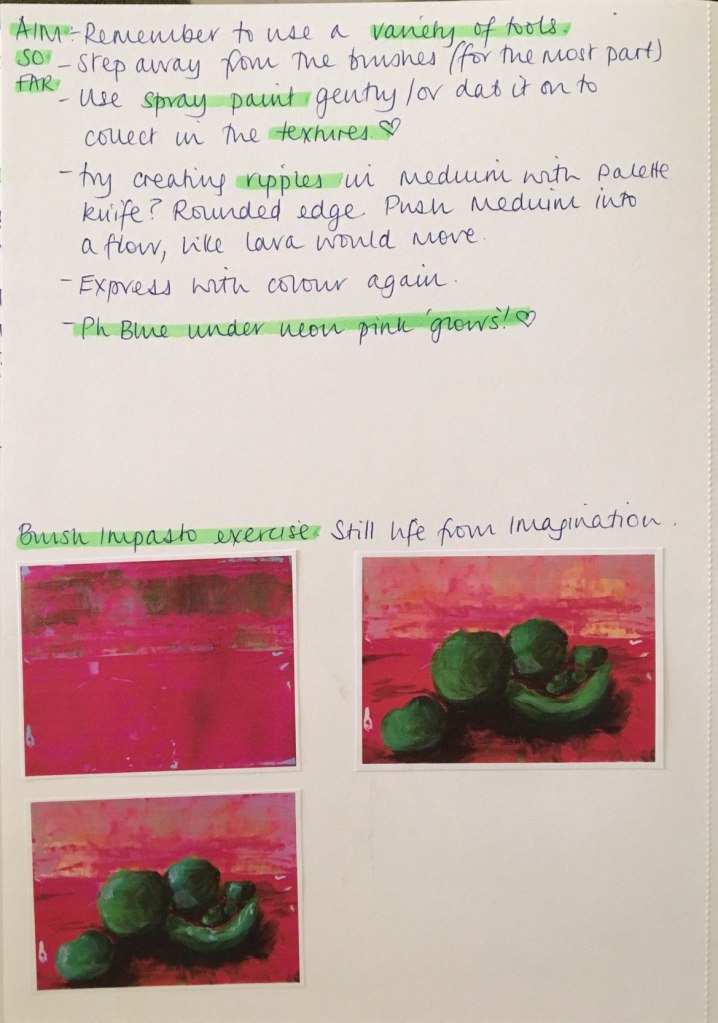 AIM - Remember to use a variety of tools.
SO - Step away from the brushes (for the most part)
FAR
- Use spray paint gently /or dab it on to
collect in the textures ♡
- try creating ripples in medium with palette
knife? Rounded edge. Push medium into
a flow, like lava would move.
- Express with colour again.
- Ph Blue under neon pink 'glows'! ♡
Brush Impasto exercise. Still life from imagination.